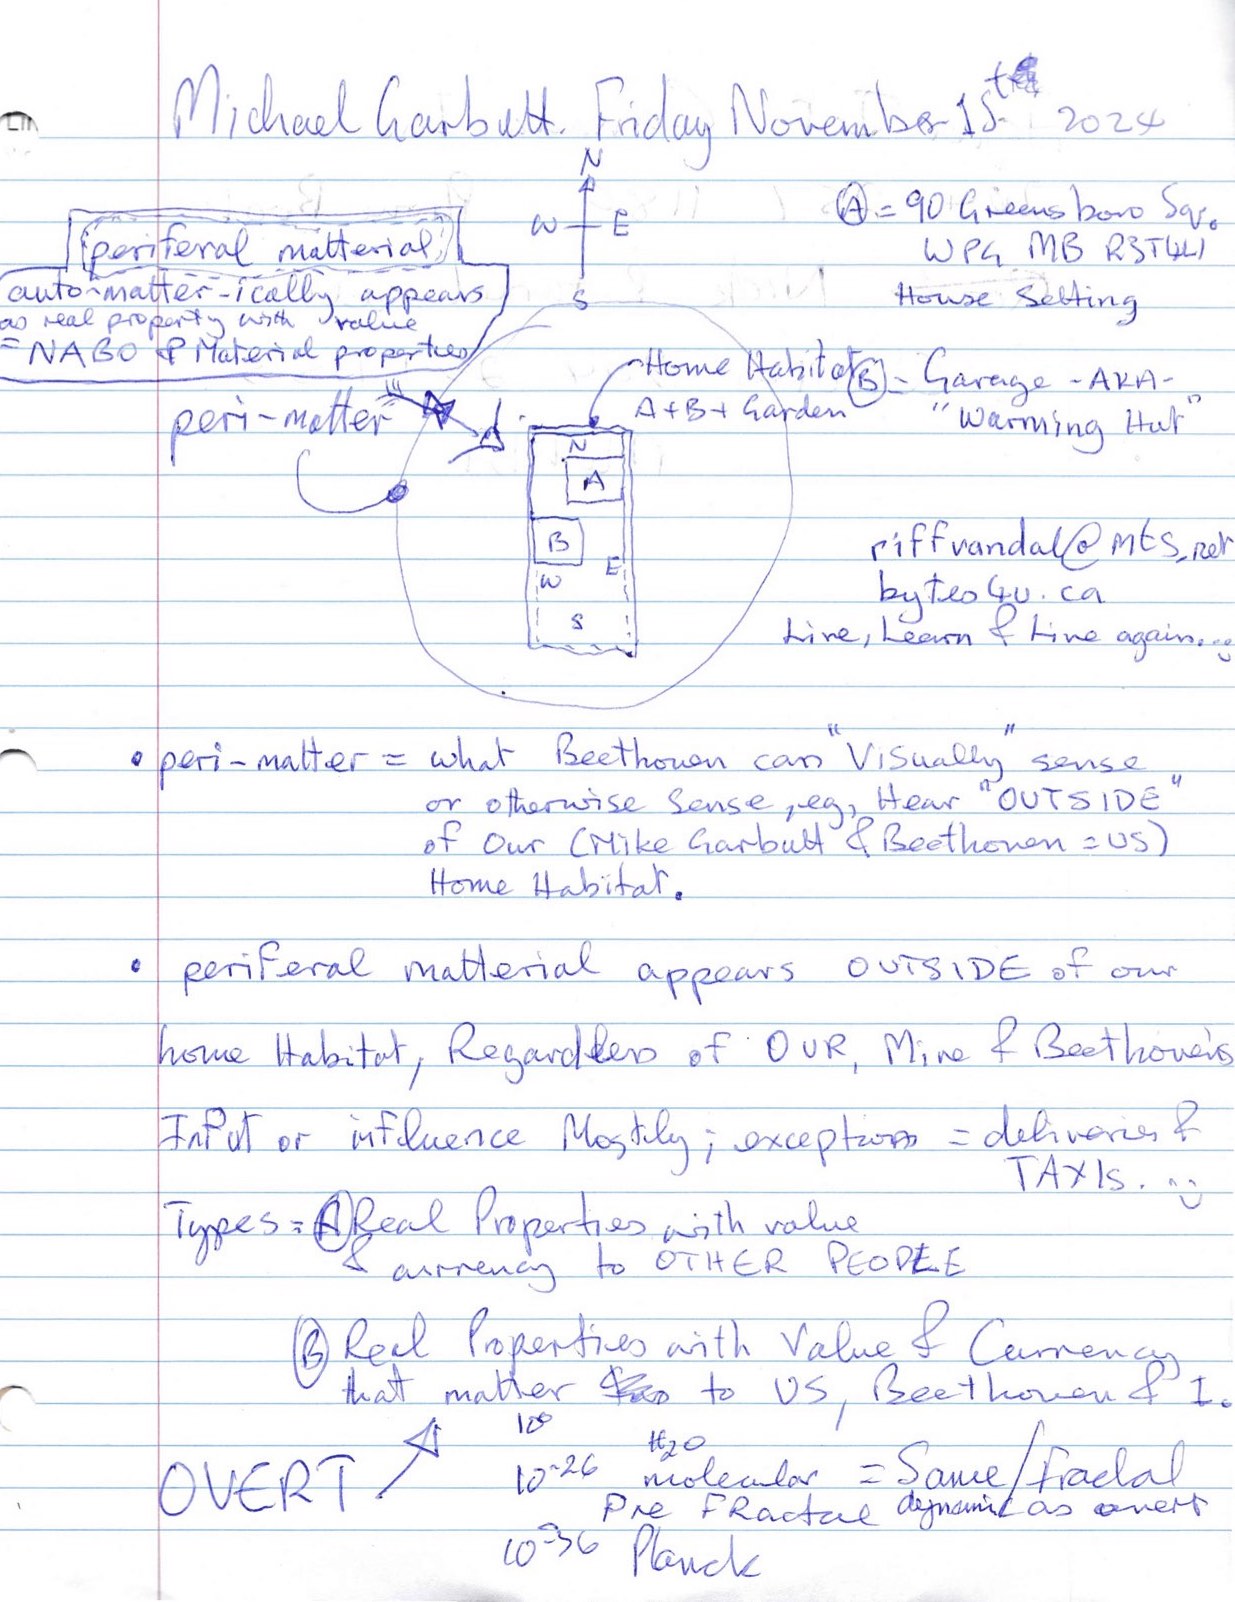 Michael Garbutt. Friday November 15th 2024
N
W E
S
A = 90 Greensboro Sqr.
WPG MB R3T4L1
House Setting
periferal matterial
auto-matter-ically appears
as real property with value
= NABO & Material properties
peri-matter
Home Habitat
A+B+Garden
B - Garage -AKA-
"Warming Hut"
N
A
B
W E
S
riffvandal@mts.net
bytes4u.ca
Live, Learn & Live again..
• peri-matter = what Beethoven can "Visually" sense
or otherwise Sense, eg, Hear "OUTSIDE"
of Our (Mike Garbutt & Beethoven = US)
Home Habitat.
• periferal matterial appears OUTSIDE of our
home Habitat, Regardless of OUR, Mine & Beethoven's
InPut or influence Mostily; exceptions = deliveries &
TAXIs.
Types = A Real Properties with value
& currency to OTHER PEOPLE
B Real Properties with Value & Currency
that matter to US, Beethoven & I.
OVERT
10⁰
10⁻²⁶ H2O molecular = Same/fractal
Pre FRactal dynamic as overt
10⁻³⁶ Planck